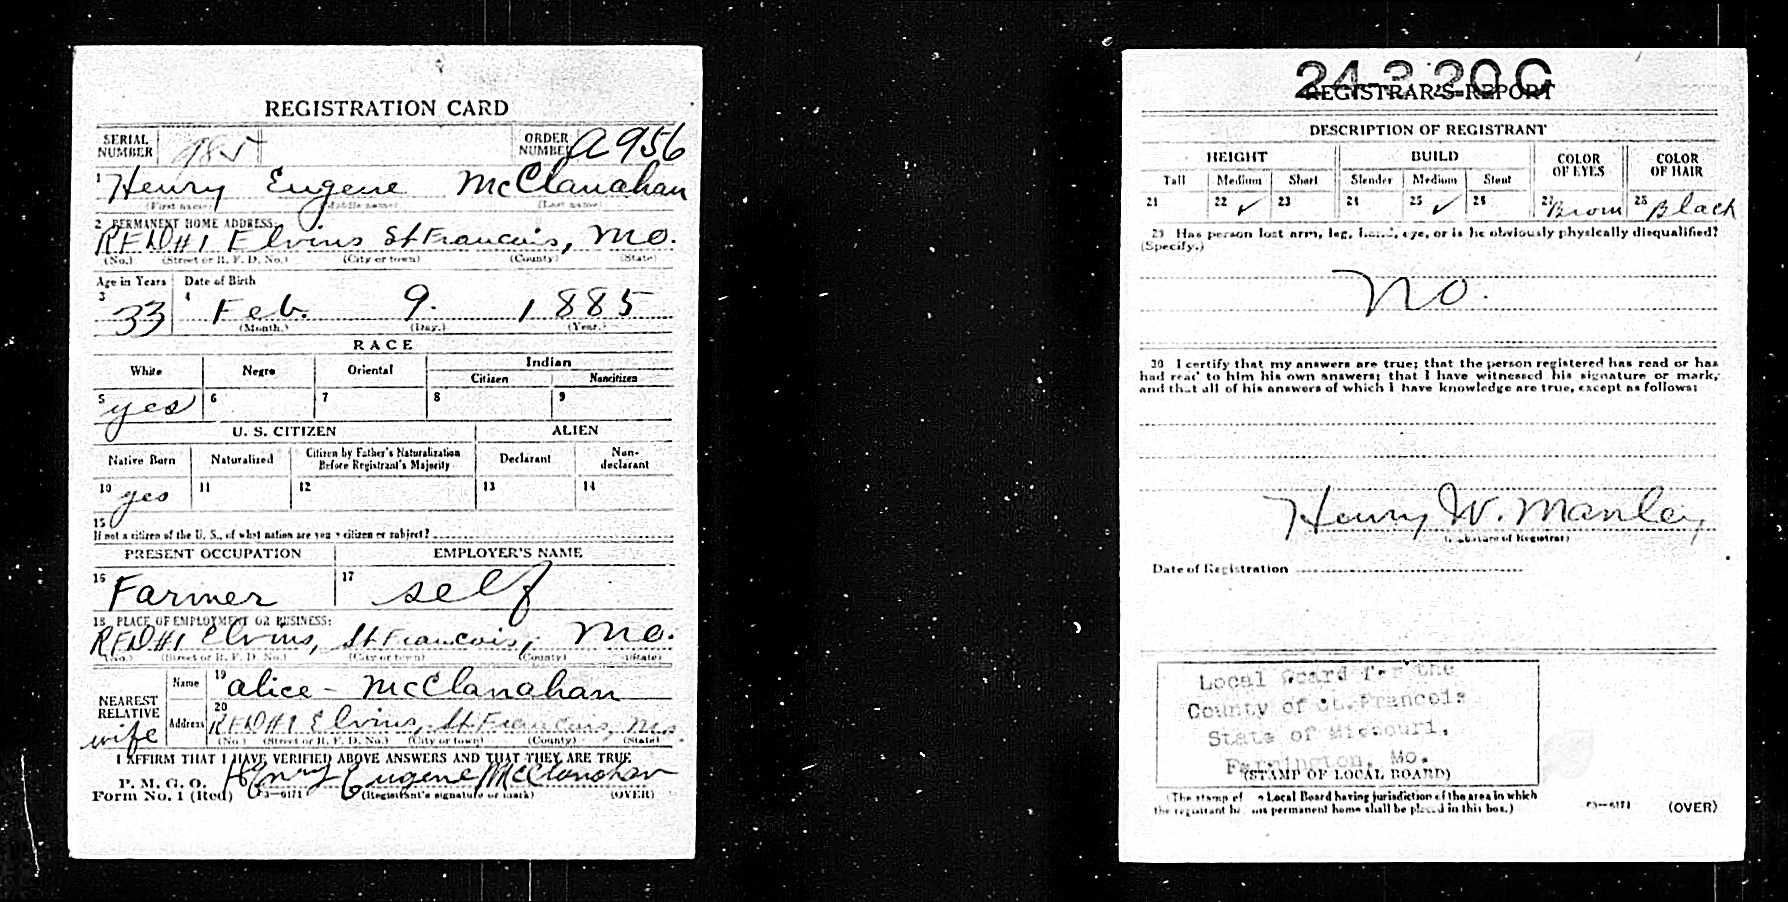 REGISTRATION CARD
SERIAL NUMBER 985 ORDER NUMBER A956
1 Henry Eugene McClanahan
(First name) (Middle name) (Last name)
2 PERMANENT HOME ADDRESS:
RFD#1 Elvins St Francois, Mo.
(No.) (Street or R. F. D. No.) (City or town) (County) (State)
Age in Years Date of Birth
3 33 4 Feb. 9. 1885
(Month.) (Day.) (Year.)
RACE
White Negro Oriental Indian
Citizen Noncitizen
5 yes 6 7 8 9
U. S. CITIZEN ALIEN
Native Born Naturalized Citizen by Father's Naturalization Before Registrant's Majority Declarant Non-declarant
10 yes 11 12 13 14
15
If not a citizen of the U. S., of what nation are you a citizen or subject?
PRESENT OCCUPATION EMPLOYER'S NAME
16 Farmer 17 self
18 PLACE OF EMPLOYMENT OR BUSINESS:
RFD#1 Elvins, St Francois, Mo.
(No.) (Street or R. F. D. No.) (City or town) (County) (State)
NEAREST RELATIVE wife
Name 19 Alice - McClanahan
Address 20 RFD#1 Elvins, St Francois, Mo.
(No.) (Street or R. F. D. No.) (City or town) (County) (State)
I AFFIRM THAT I HAVE VERIFIED ABOVE ANSWERS AND THAT THEY ARE TRUE
P. M. G. O.
Form No. 1 (Red) 03—6171 Henry Eugene McClanahan
(Registrant's signature or mark) (OVER)
24-3-20 C
REGISTRAR'S REPORT
DESCRIPTION OF REGISTRANT
HEIGHT BUILD COLOR OF EYES COLOR OF HAIR
Tall Medium Short Slender Medium Stout
21 22 ✓ 23 24 25 ✓ 26 27 Brown 28 Black
29 Has person lost arm, leg, hand, eye, or is he obviously physically disqualified?
(Specify.)
No.
30 I certify that my answers are true; that the person registered has read or has
had read to him his own answers; that I have witnessed his signature or mark,
and that all of his answers of which I have knowledge are true, except as follows:
Henry W. Manley
(Signature of Registrar)
Date of Registration
Local Board for the
County of St. Francois
State of Missouri,
Farmington, Mo.
(STAMP OF LOCAL BOARD)
(The stamp of the Local Board having jurisdiction of the area in which
the registrant has his permanent home shall be placed in this box.)
03—6171 (OVER)